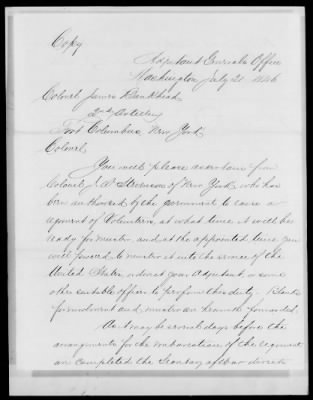 Copy
Adjutant General's Office
Washington July 21. 1846
Colonel James Bankhead,
2nd Artillery
Fort Columbus, New York.
Colonel,
You will please ascertain from
Colonel J. D. Stevenson of New York, who has
been authorized by the government to raise a
regiment of Volunteers, at what time it will be
ready for muster, and at the appointed time you
will proceed to muster it into the service of the
United States, or direct your Adjutant, or some
other suitable officer to perform this duty. Blanks
for enrolment and muster are herewith forwarded.
As it may be several days before the
arrangements for the embarcation of the regiment
are completed the Secretary of War directs